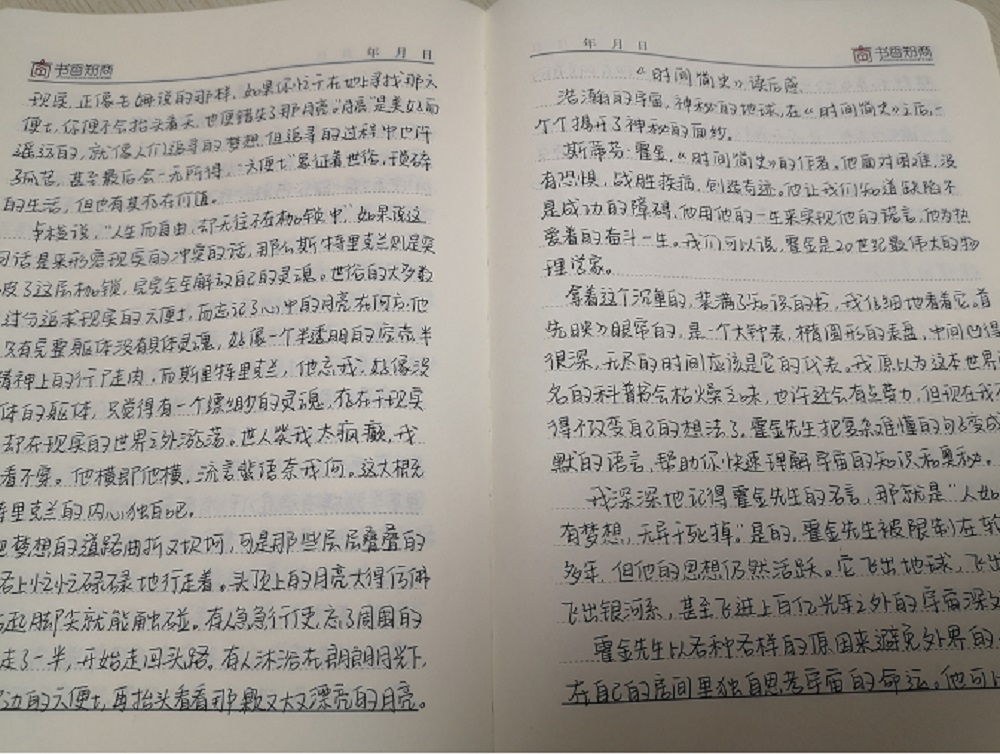 书香郑商
年 月 日
现实。正像毛姆说的那样,如果你忙于在地上寻找那六
便士,你便不会抬头看天,也便错失了那月亮。"月亮"是美好而
遥远的,就像人们追寻的梦想,但追寻的过程中也伴
了孤苦,甚至最后会一无所得,"六便士"象征着世俗,琐碎
的生活,但也有其存在价值。
卢梭说,"人生而自由,却无往不在枷锁中",如果说这
句话是来形容现实的冲突的话,那么斯特里克兰则是突
皮了这层枷锁,完完全全解放自己的灵魂。世俗的大多数
过分追求现实的六便士,而忘记了心中的月亮在何方,他
只有完整躯体没有具体灵魂,好像一个半透明的空壳,半
精神上的行尸走肉,而斯里特里克兰,他忘我,好像没
体的躯体,只觉得有一个缥缈的灵魂,存在于现实
却在现实的世界之外游荡。世人笑我太疯癫,我
看不穿。他横即他横,流言蜚语奈我何。这大概就
特里克兰的内心独白吧。
把梦想的道路曲折又坎坷,可是那些层层叠叠的
路上忙忙碌碌地行走着。头顶上的月亮大得仿佛
起脚尖就能触碰。有人急急行吏,忘了周围的
走了一半,开始走回头路,有人沐浴在朗朗月光下,
边的六便士,再抬头看看那颗又大又漂亮的月亮。
年 月 日
书香郑商
《时间简史》读后感
浩瀚的宇宙,神秘的地球,在《时间简史》之后,一
个个揭开了神秘的面纱。
斯蒂芬·霍金,《时间简史》的作者。他面对困难,没
有恐惧,战胜疾病,创造奇迹。他让我们知道缺陷不
是成功的障碍,他用他的一生来实现他的诺言,他为热
爱着的奋斗一生。我们可以说,霍金是20世纪最伟大的物
理学家。
拿着这个沉重的,装满了知识的书,我仔细地看着它。首
先映入眼帘的,是一个大钟表,椭圆形的表盘,中间凹得
很深,无尽的时间应该是它的代表。我原以为这本世界
名的科普书会枯燥乏味,也许还会有点费力,但现在我不
得不改变自己的想法了。霍金先生把复杂难懂的句子变成
默的语言,帮助你快速理解宇宙的知识和奥秘。
我深深地记得霍金先生的名言,那就是"人如
有梦想,无异于死掉。"是的,霍金先生被限制在轮
多年,但他的思想仍然活跃。它飞出地球,飞出
飞出银河系,甚至飞进上百亿光年之外的宇宙深处
霍金先生以各种各样的原因来避免外界的
在自己的房间里独自思考宇宙的命运。他可以